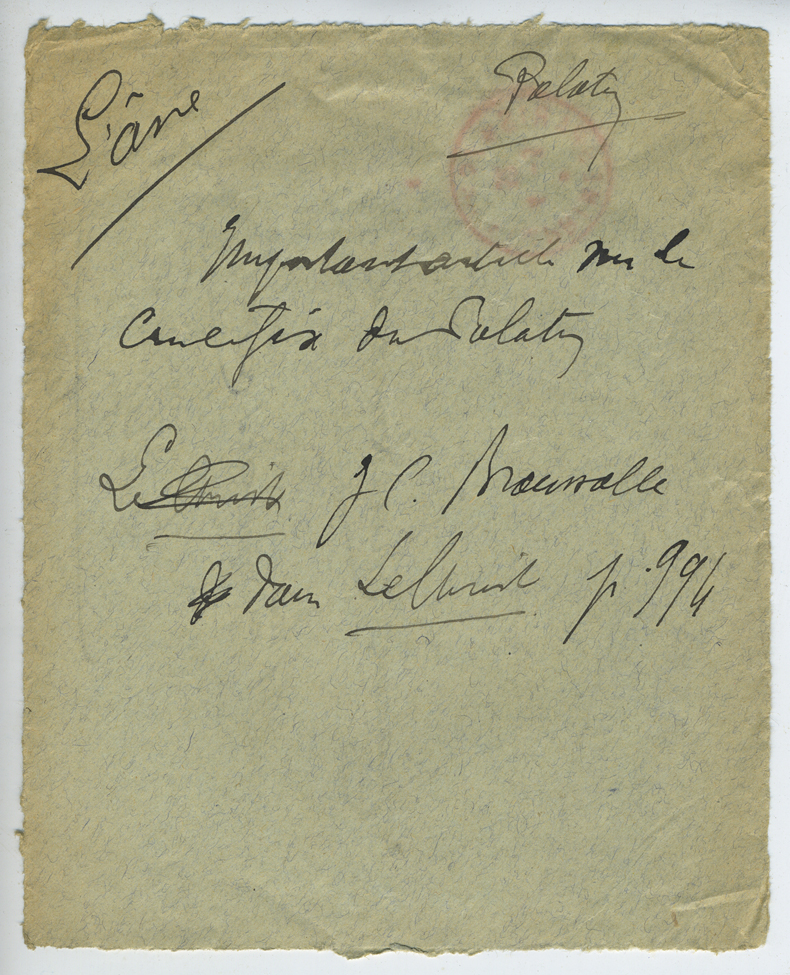 L'âne
Palatin
Important article sur le
Crucifix du Palatin
Le Christ J C. Broussolle
dans Le Christ p. 994